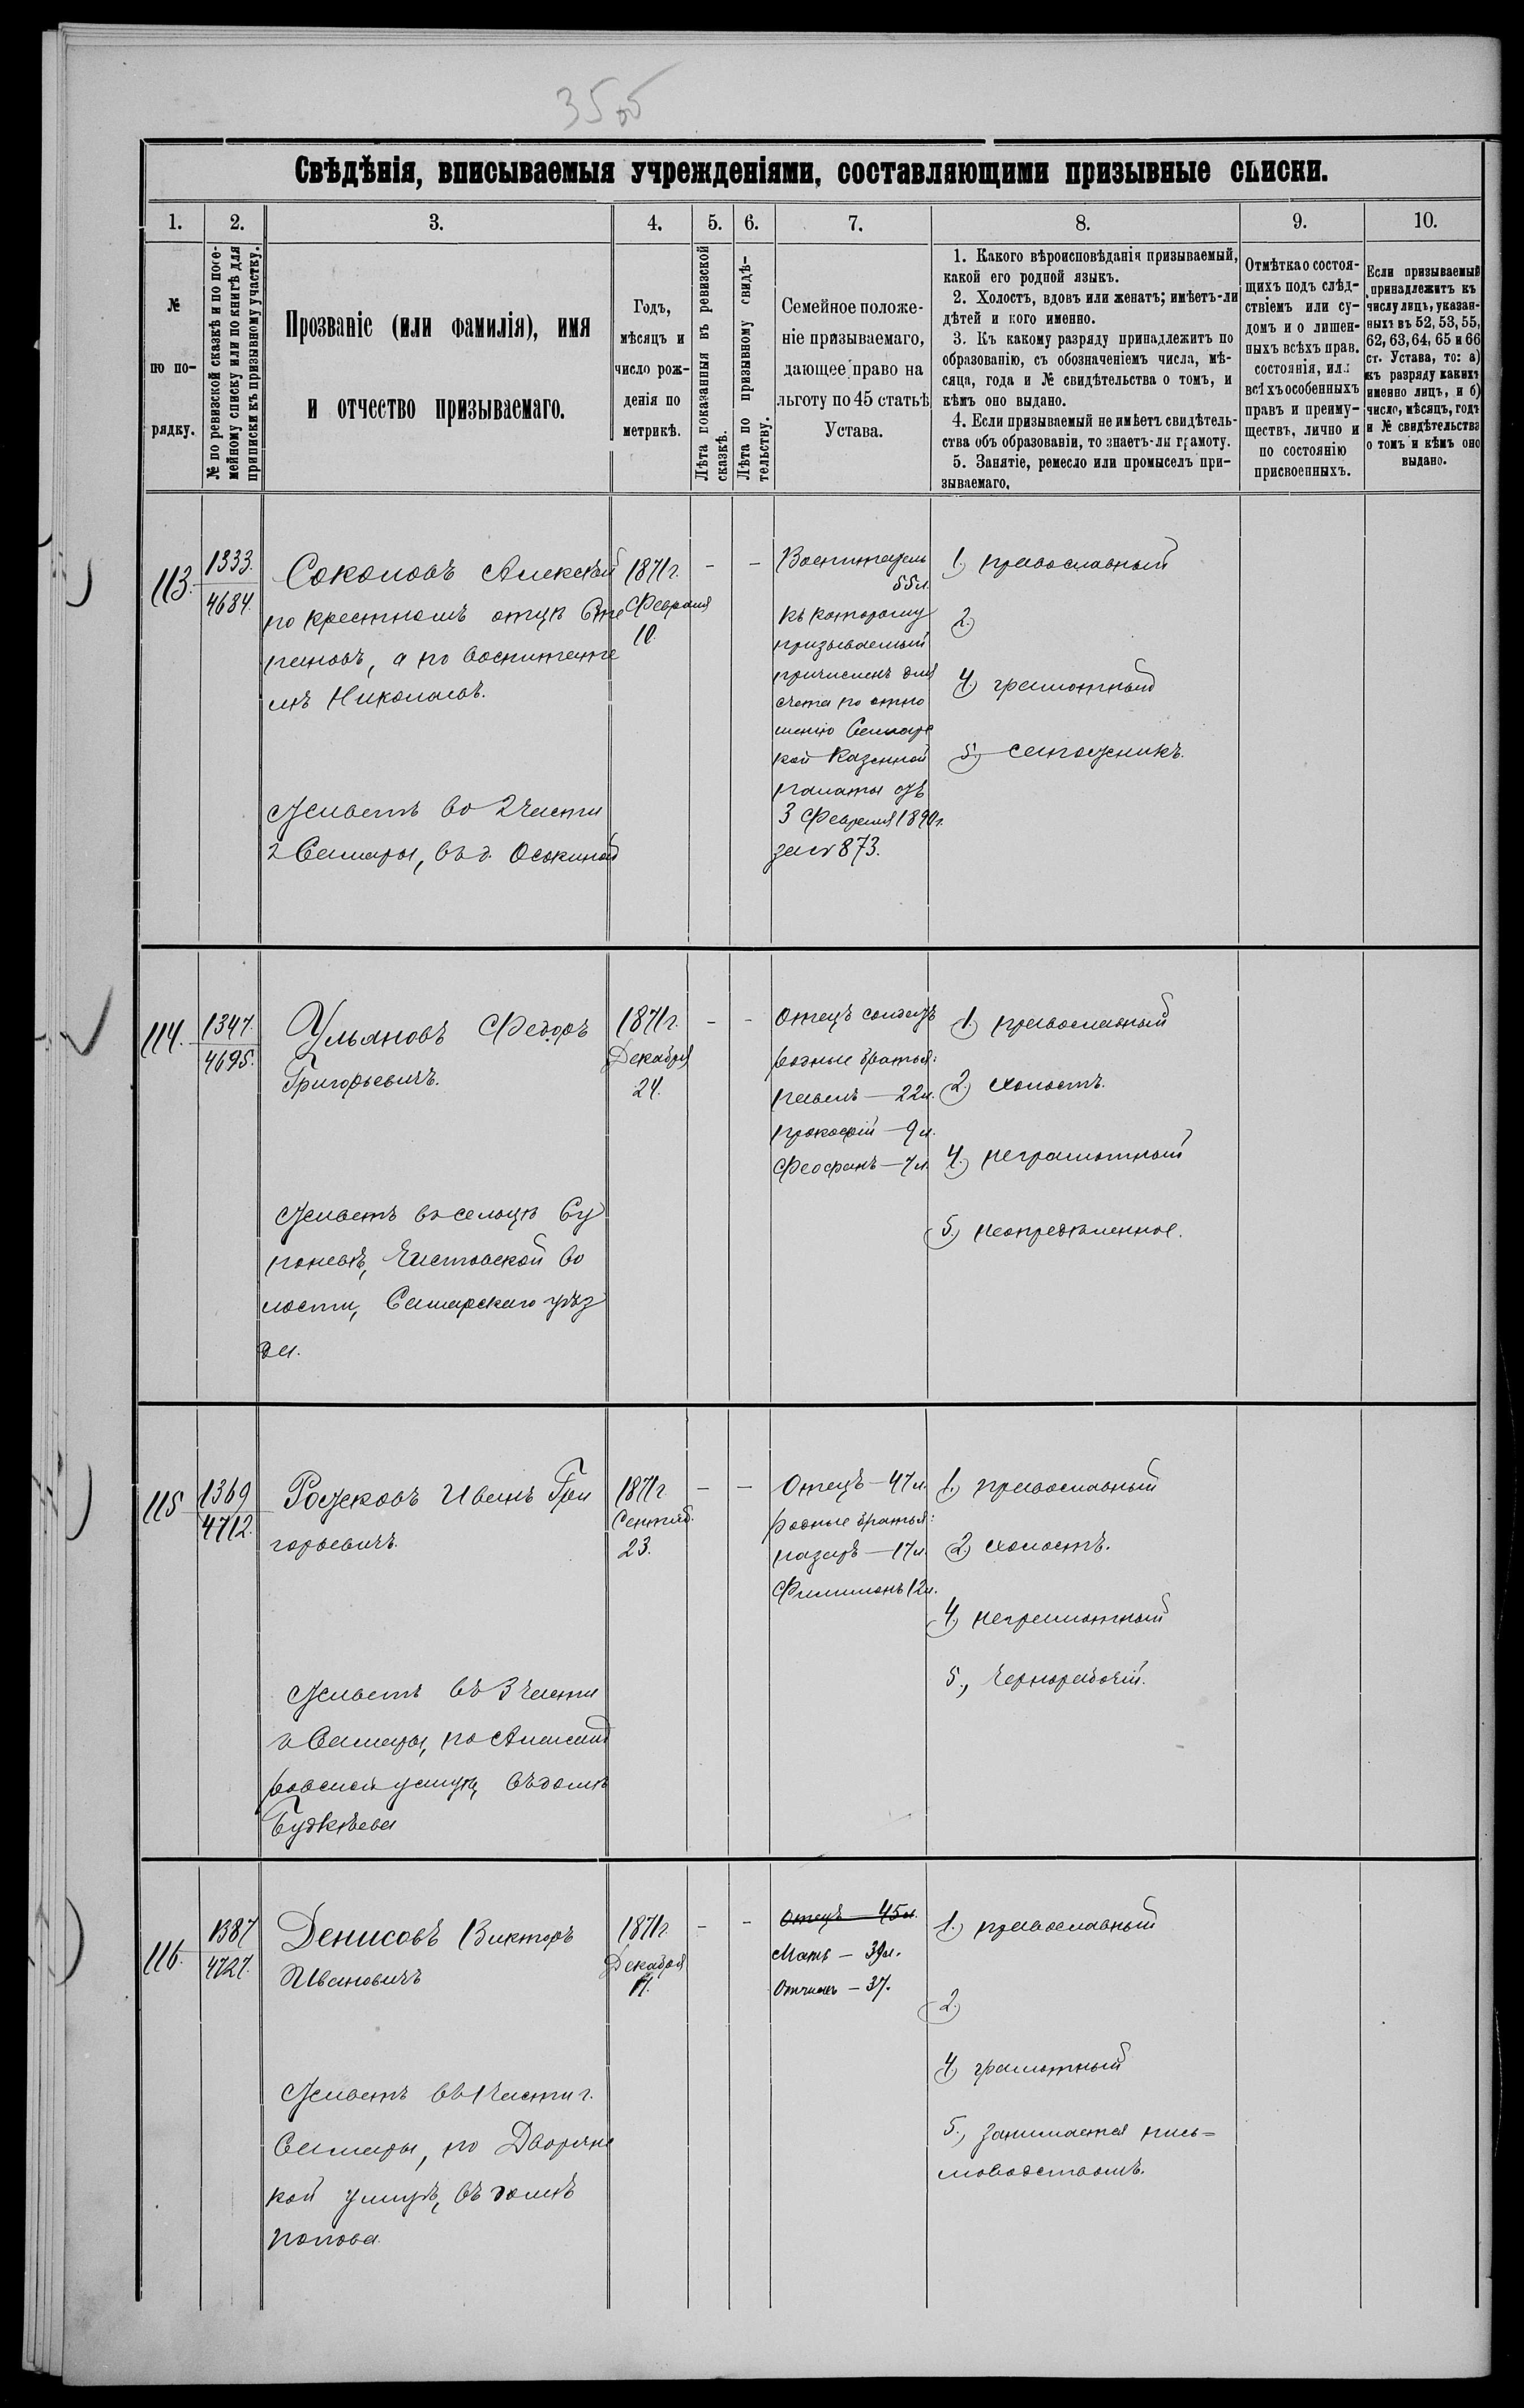 35 об
Свѣдѣнія, вписываемыя учрежденіями, составляющими призывные списки.
1.
2.
3.
4.
5.
6.
7.
8.
9.
10.
№
по по-
рядку.
№ по ревизской сказкѣ и по посе-
мейному списку или по книгѣ для
приписки къ призывному участку.
Прозваніе (или фамилія), имя
и отчество призываемаго.
Годъ,
мѣсяцъ и
число рож-
денія по
метрикѣ.
Лѣта показанныя въ ревизской
сказкѣ.
Лѣта по призывному свидѣ-
тельству.
Семейное положе-
ніе призываемаго,
дающее право на
льготу по 45 статьѣ
Устава.
1. Какого вѣроисповѣданія призываемый,
какой его родной языкъ.
2. Холостъ, вдовъ или женатъ; имѣетъ-ли
дѣтей и кого именно.
3. Къ какому разряду принадлежитъ по
образованію, съ обозначеніемъ числа, мѣ-
сяца, года и № свидѣтельства о томъ, и
кѣмъ оно выдано.
4. Если призываемый не имѣетъ свидѣтель-
ства объ образованіи, то знаетъ-ли грамоту.
5. Занятіе, ремесло или промыселъ при-
зываемаго.
Отмѣтка о состоя-
щихъ подъ слѣд-
ствіемъ или су-
домъ и о лишен-
ныхъ всѣхъ прав.
состоянія, или
всѣхъ особенныхъ
правъ и преиму-
ществъ, лично и
по состоянію
присвоенныхъ.
Если призываемый
принадлежитъ къ
числу лицъ, указан-
ныхъ въ 52, 53, 55,
62, 63, 64, 65 и 66
ст. Устава, то: а)
къ разряду какихъ
именно лицъ, и б)
число, мѣсяцъ, годъ
и № свидѣтельства
о томъ и кѣмъ оно
выдано.
113.
1333.
4684.
Соколовъ Алексѣй
по крестномъ отцѣ Сте
пановъ, а по воспитате
лѣ Николаевъ.
Живетъ во 2 части
г Самары, въ д. Осокиной
1871 г.
Февраля
10.
-
-
Воспитатель
55 л.
къ которому
призываемый
причисленъ для
счета по отно
шенію Самарс
кой Казенной
палаты отъ
3 Февраля 1890 г.
за № 873.
1) православный
2)
4.) грамотный
5) сапожникъ.
114.
1347.
4695.
Ульяновъ Федоръ
Григорьевичъ.
Живетъ въ сельцѣ Су
поневѣ, Чистовской во
лости, Самарскаго уѣз
да.
1871 г.
Декабря
24.
-
-
Отецъ солдатъ
родные братья:
Павелъ — 22 л.
Прокофій — 9 л.
Феофанъ — 7 л.
1.) православный
2.) холостъ.
4.) неграмотный
5.) неопредѣленное.
115
1369
4712.
Рожковъ Иванъ Гри
горьевичъ.
Живетъ въ 3 части
г Самары, по Александ
ровской улицѣ, въ домѣ
Будкѣева
1871 г
Сентяб.
23.
-
-
Отецъ — 47 л.
родные братья:
Назаръ — 17 л.
Филимонъ 12 л.
1.) православный
2) холостъ.
4.) неграмотный
5., Чернорабочій.
116.
1387
4727.
Денисовъ Викторъ
Ивановичъ
Живетъ въ 1 части г.
Самары, по Дворянс
кой улицѣ, въ домѣ
Попова.
1871 г.
Декабря
11.
-
-
Отецъ — 45 л.
Мать — 39 л.
Отчимъ — 37.
1.) православный
2.)
4) грамотный
5., занимается пись=
моводствомъ.